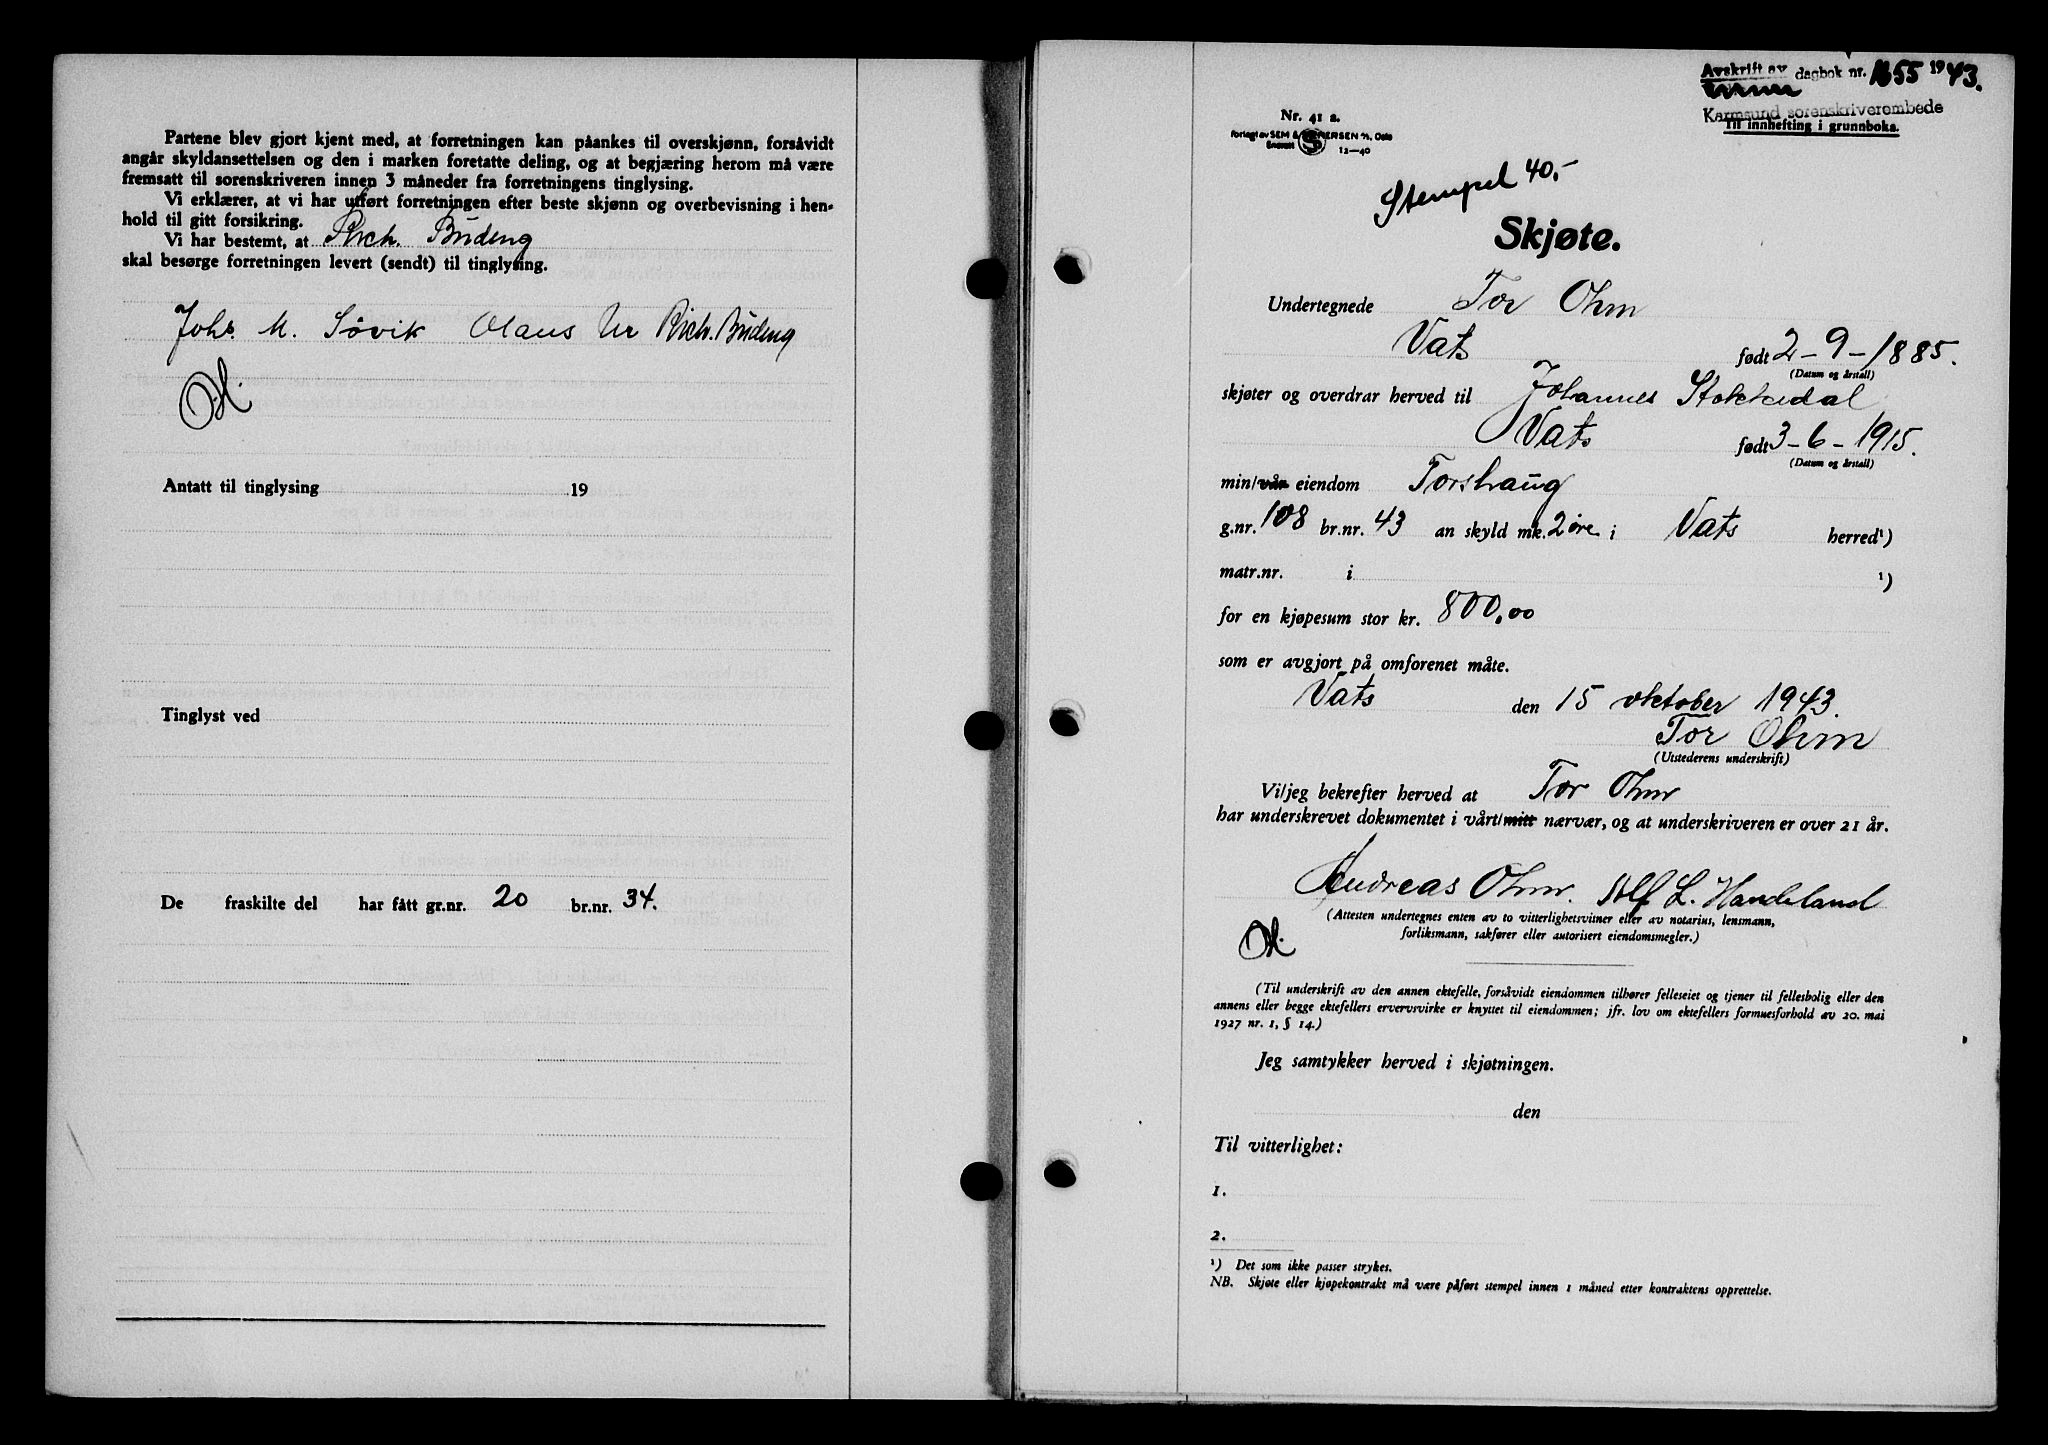 Partene blev gjort kjent med, at forretningen kan påankes til overskjønn, forsåvidt
angår skyldansettelsen og den i marken foretatte deling, og at begjæring herom må være
fremsatt til sorenskriveren innen 3 måneder fra forretningens tinglysing.
Vi erklærer, at vi har utført forretningen efter beste skjønn og overbevisning i hen-
hold til gitt forsikring.
Vi har bestemt, at Rich. Büding
skal besørge forretningen levert (sendt) til tinglysing.
Johs. M. Søvik Olaus Ur Rich. Büding
Antatt til tinglysing 19
Tinglyst ved
De fraskilte del har fått gr.nr. 20 br.nr. 34.
Avskrift av dagbok nr. 1655 1943.
Karmsund sorenskriverembede
Til innhefting i grunnboka.
Nr. 41 a.
12-40
Stempel 40,-
Skjøte.
Undertegnede Tor Ohm
Vats født 2-9-1885.
(Datum og årstall)
skjøter og overdrar herved til Johannes Stokkedal
Vats født 3-6-1915.
(Datum og årstall)
min/vår eiendom Torshaug
g.nr. 108 br.nr. 43 an skyld mk. 2 øre i Vats herred¹)
matr.nr. i ¹)
for en kjøpesum stor kr. 800,00
som er avgjort på omforenet måte.
Vats den 15 oktober 1943.
Tor Ohm
(Utstederens underskrift)
Vi/jeg bekrefter herved at Tor Ohm
har underskrevet dokumentet i vårt/mitt nærvær, og at underskriveren er over 21 år.
Andreas Ohm. Alf L. Handeland
(Attesten undertegnes enten av to vitterlighetsvitner eller av notarius, lensmann,
forliksmann, sakfører eller autorisert eiendomsmegler.)
(Til underskrift av den annen ektefelle, forsåvidt eiendommen tilhører felleseiet og tjener til fellesbolig eller den
annens eller begge ektefellers ervervsvirke er knyttet til eiendommen; jfr. lov om ektefellers formuesforhold av 20. mai
1927 nr. 1, § 14.)
Jeg samtykker herved i skjøtningen.
den
Til vitterlighet:
1.
2.
¹) Det som ikke passer strykes.
NB. Skjøte eller kjøpekontrakt må være påført stempel innen 1 måned etter kontraktens opprettelse.